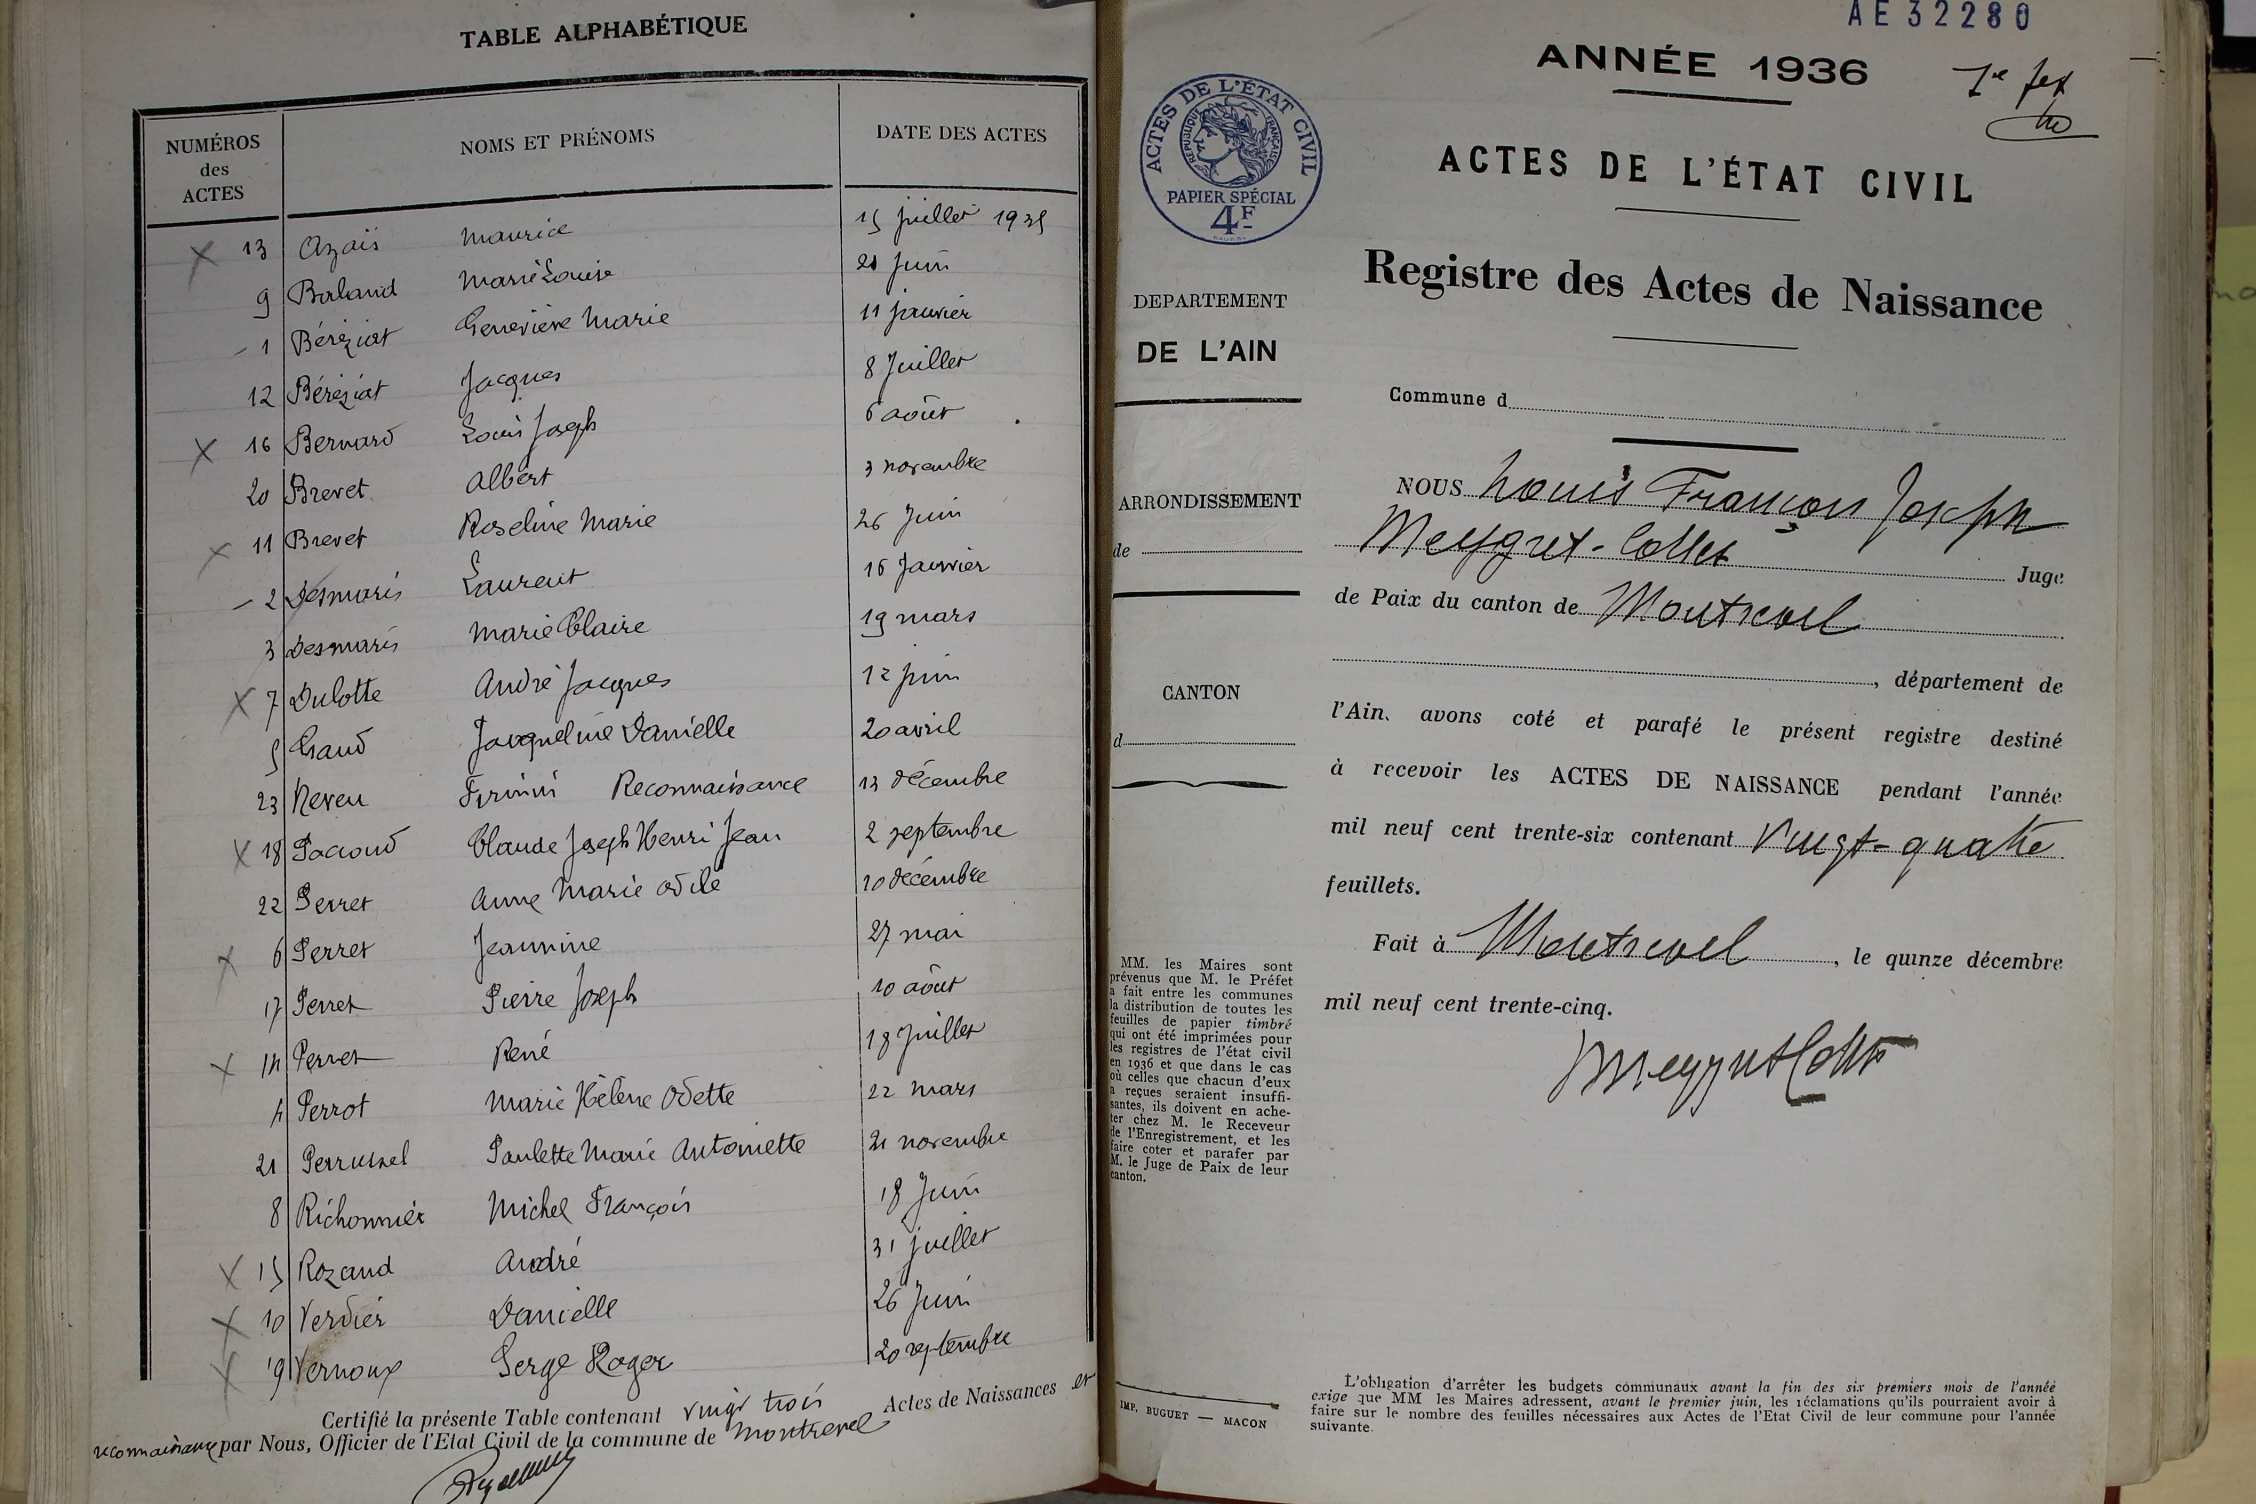 TABLE ALPHABÉTIQUE
NUMÉROS des ACTES NOMS ET PRÉNOMS DATE DES ACTES
13 Azaïs Maurice 15 juillet 1935
9 Marie Louise 21 juin
1 Béréziat Geneviève Marie 11 janvier
12 Béréziat Jacques 8 Juillet
16 Bernard Louis Joseph 6 août
20 Brevet Albert 3 novembre
11 Brevet Roseline Marie 26 Juin
2 Desmaris Laurent 16 Janvier
3 Desmaris Marie Claire 19 mars
7 Dulotte André Jacques 12 juin
5 Jacqueline Danielle 20 avril
23 Neveu Firmin Reconnaissance 13 décembre
18 Pacoud Claude Joseph Henri Jean 2 septembre
22 Perret Anne Marie Odile 10 décembre
6 Perret Jeannine 27 mai
17 Perret Pierre Joseph 10 août
14 Perret René 18 Juillet
4 Perrot Marie Hélène Odette 22 mars
21 Paulette Marie Antoinette 21 novembre
8 Richonnier Michel François 18 Juin
15 Rozand André 31 juillet
10 Verdier Danielle 26 Juin
19 Vernoux Serge Roger 20 septembre
Certifié la présente Table contenant vingt trois Actes de Naissances et
reconnaissance par Nous, Officier de l'Etat Civil de la commune de Montrevel
AE32280
ANNÉE 1936
ACTES DE L'ÉTAT CIVIL
RÉPUBLIQUE FRANÇAISE
PAPIER SPÉCIAL
4F
DEPARTEMENT
DE L'AIN
ARRONDISSEMENT
de
CANTON
d
MM. les Maires sont
prévenus que M. le Préfet
a fait entre les communes
la distribution de toutes les
feuilles de papier timbré
qui ont été imprimées pour
les registres de l'état civil
en 1936 et que dans le cas
où celles que chacun d'eux
a reçues seraient insuffi-
santes, ils doivent en ache-
ter chez M. le Receveur
de l'Enregistrement, et les
faire coter et parafer par
M. le Juge de Paix de leur
canton.
IMP. BUGUET — MACON
ACTES DE L'ÉTAT CIVIL
Registre des Actes de Naissance
Commune d
NOUS Louis François Joseph
Meygret-Collet Juge
de Paix du canton de Montrevel
, département de
l'Ain, avons coté et parafé le présent registre destiné
à recevoir les ACTES DE NAISSANCE pendant l'année
mil neuf cent trente-six contenant Vingt-quatre
feuillets.
Fait à Montrevel, le quinze décembre
mil neuf cent trente-cinq.
Meygret Collet
L'obligation d'arrêter les budgets communaux avant la fin des six premiers mois de l'année
exige que MM les Maires adressent, avant le premier juin, les réclamations qu'ils pourraient avoir à
faire sur le nombre des feuilles nécessaires aux Actes de l'Etat Civil de leur commune pour l'année
suivante.